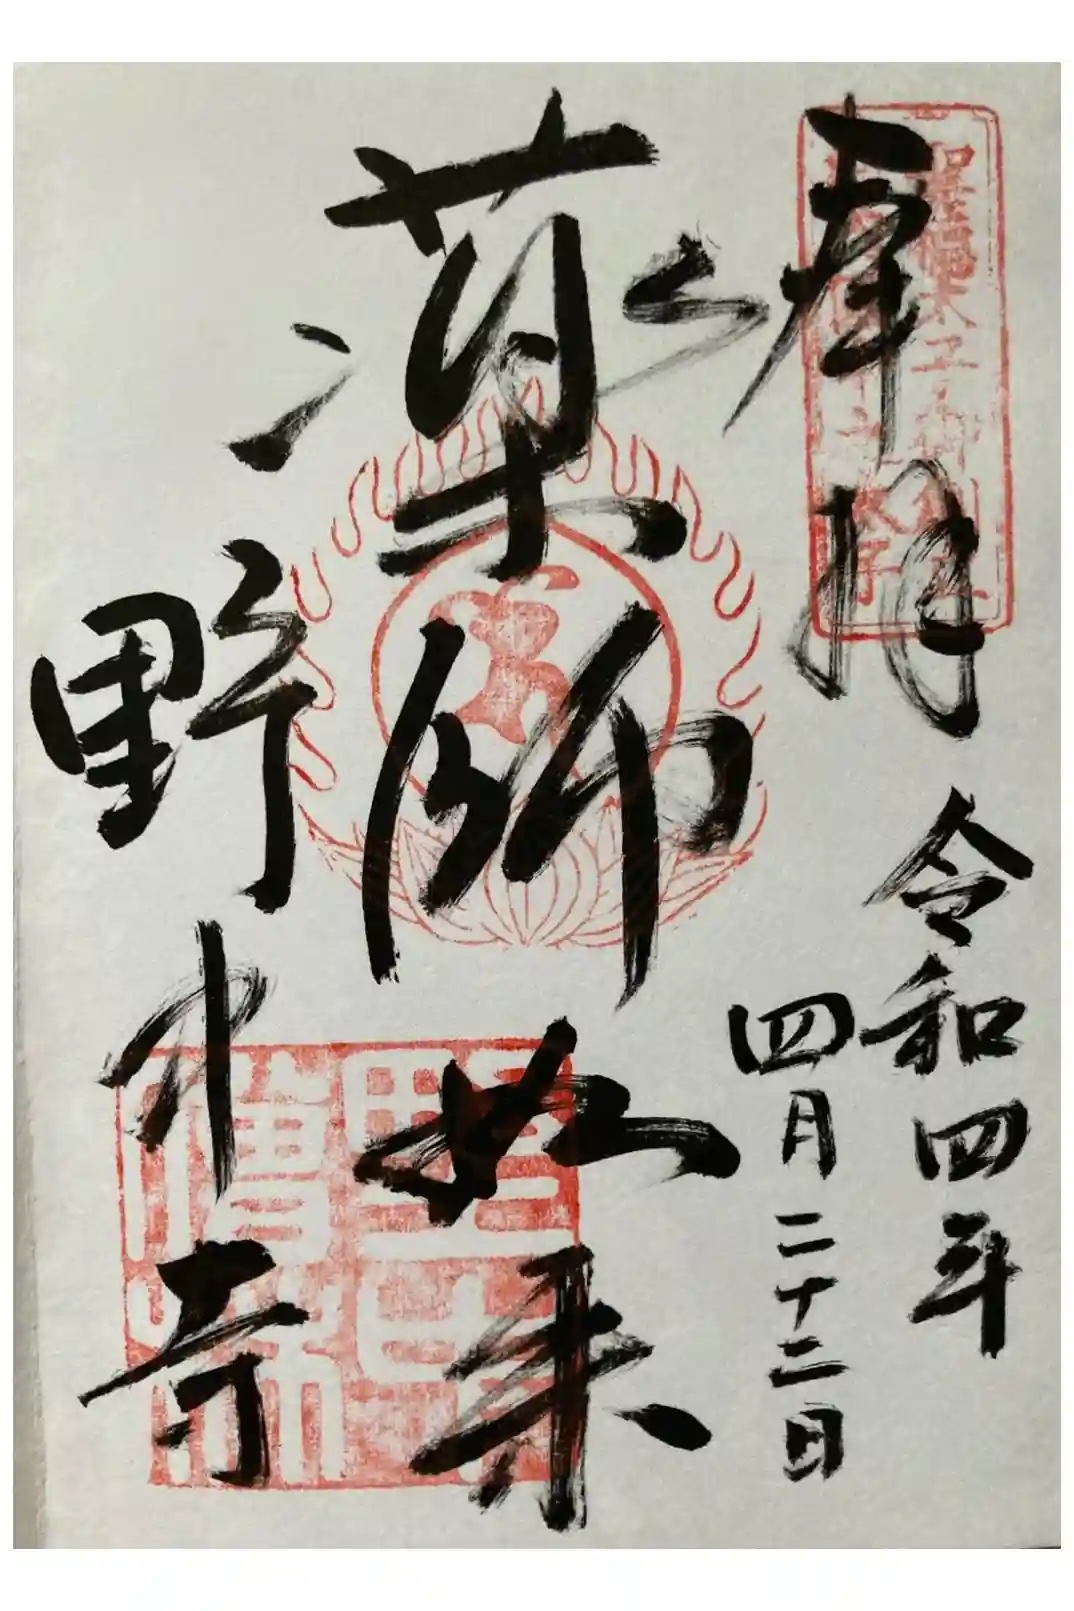 奉拝
令和四年
四月二十二日
薬師如来
野中寺